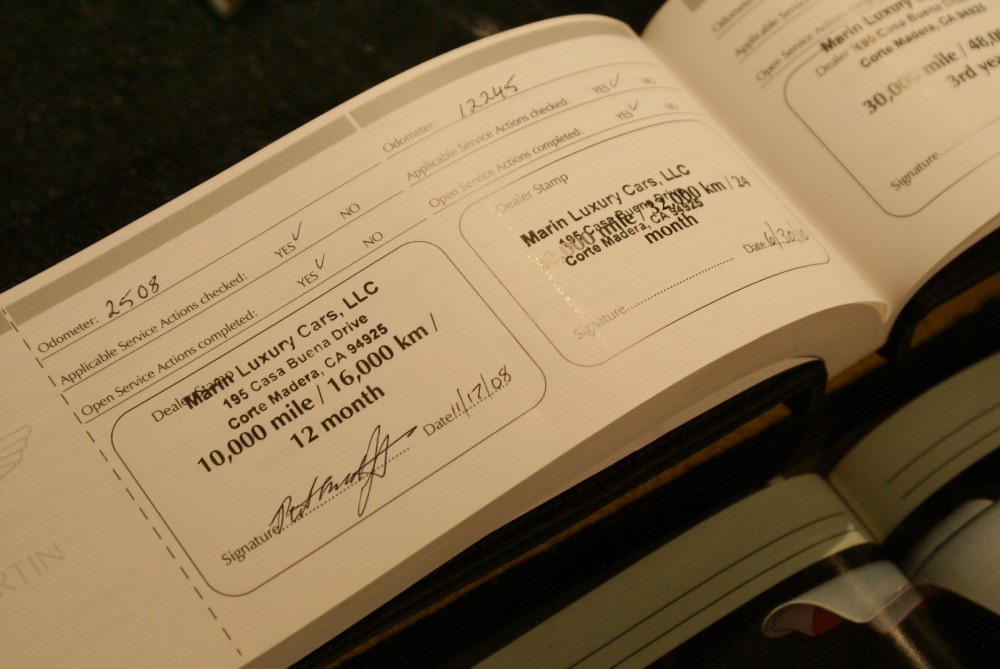 Odometer: 2508
Applicable Service Actions checked: YES ✓ NO
Open Service Actions completed: YES ✓ NO
Dealer Stamp
Marin Luxury Cars, LLC
195 Casa Buena Drive
Corte Madera, CA 94925
10,000 mile / 16,000 km /
12 month
Signature
Date 11/17/08
Odometer: 12245
Applicable Service Actions checked: YES ✓ NO
Open Service Actions completed: YES ✓ NO
Dealer Stamp
Marin Luxury Cars, LLC
195 Casa Buena Drive
Corte Madera, CA 94925
000 mile / 32,000 km / 24
month
Signature
Date 6/30/10
Odometer
Applicable Servi
Open Service Action
Marin Luxury
Dealer 195 Casa Buena D
Corte Madera, CA 94925
30,000 mile / 48,0
3rd yea
Signature
RTIN